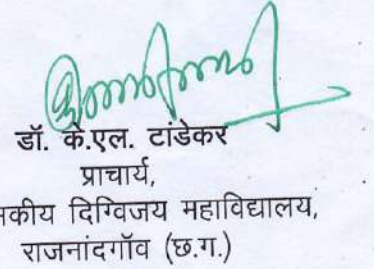 डॉ. के.एल. टांडेकर
प्राचार्य,
दिग्विजय महाविद्यालय,
राजनांदगॉव (छ.ग.)